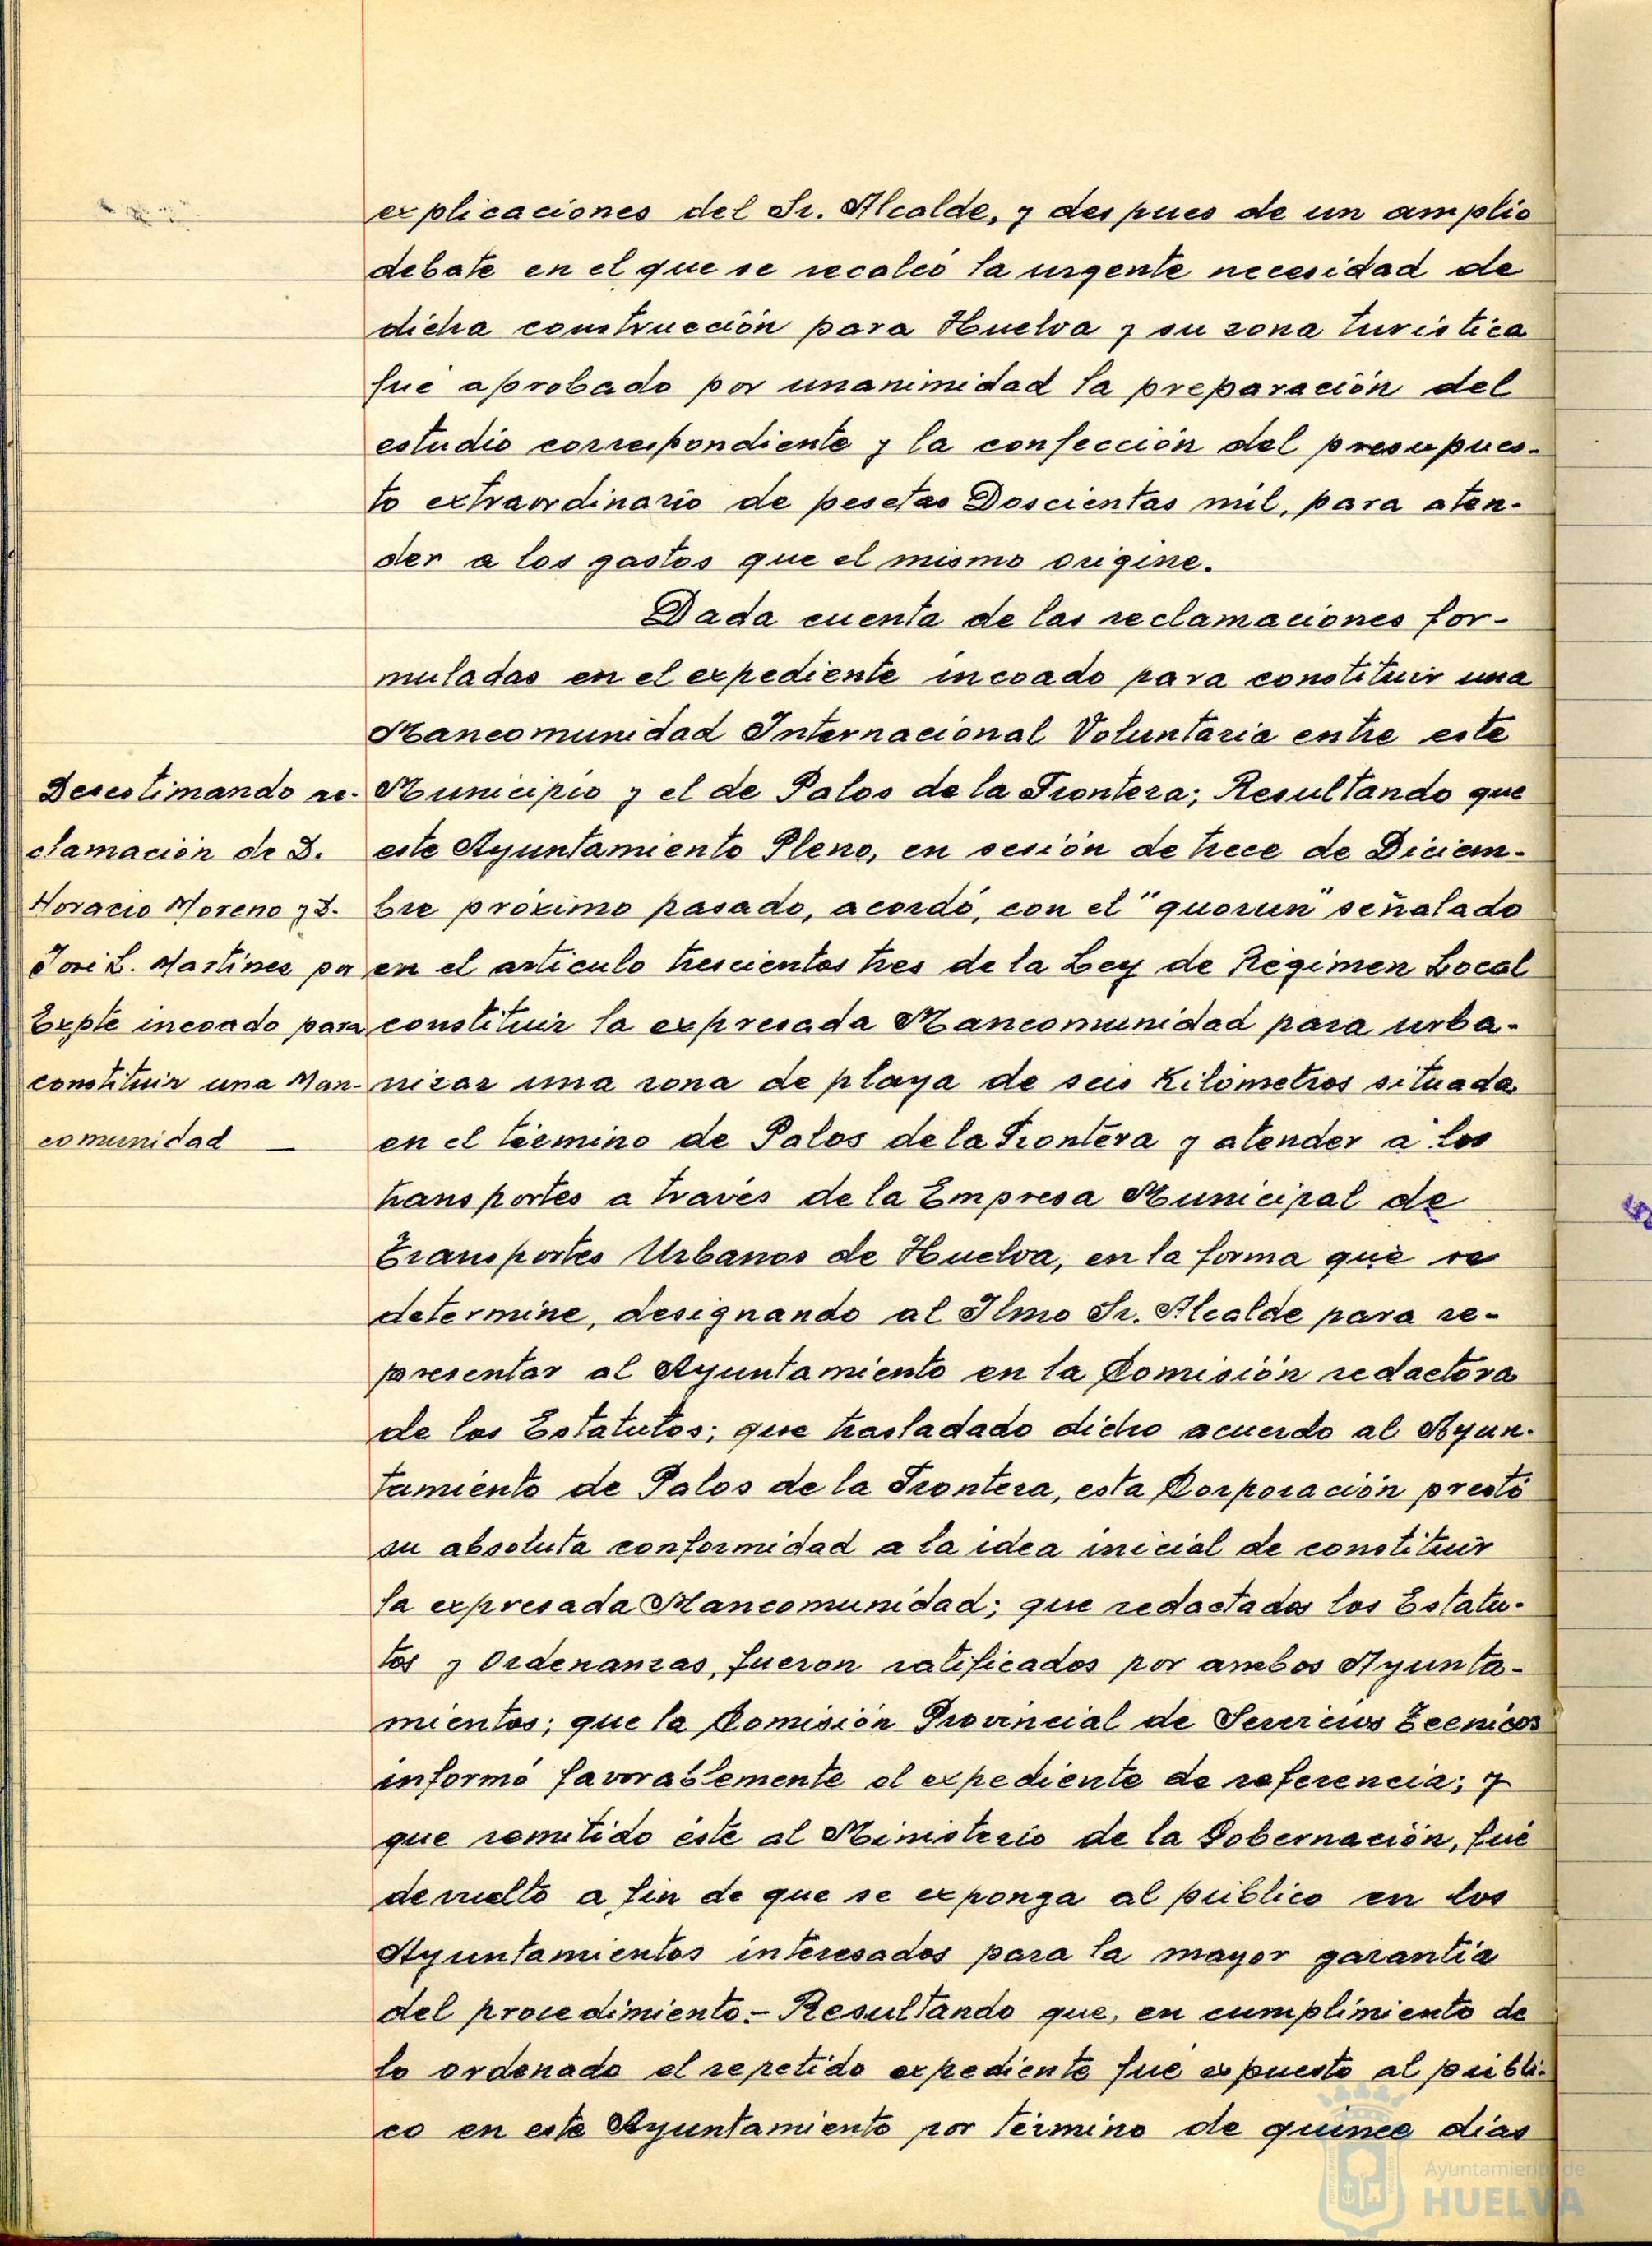 explicaciones del Sr. Alcalde, y despues de un amplio
debate en el que se recalcó la urgente necesidad de
dicha construcción para Huelva y su zona turistica
fué aprobado por unanimidad la preparación del
estudio correspondiente y la confección del presupues-
to extraordinario de pesetas Doscientas mil, para aten-
der a los gastos que el mismo origine.
Dada cuenta de las reclamaciones for-
muladas en el expediente incoado para constituir una
Mancomunidad Internacional Voluntaria entre este
Municipio y el de Palos de la Frontera; Resultando que
este Ayuntamiento Pleno, en sesión de trece de Diciem-
bre próximo pasado, acordó, con el "quorun" señalado
en el articulo trescientos tres de la Ley de Régimen Local
constituir la expresada Mancomunidad para urba-
nizar una zona de playa de seis Kilómetros situada
en el término de Palos de la Frontera y atender a los
transportes a través de la Empresa Municipal de
Transportes Urbanos de Huelva, en la forma que se
determine, designando al Ilmo Sr. Alcalde para re-
presentar al Ayuntamiento en la Comisión redactora
de los Estatutos; que trasladado dicho acuerdo al Ayun-
tamiento de Palos de la Frontera, esta Corporación prestó
su absoluta conformidad a la idea inicial de constituir
la expresada Mancomunidad; que redactados los Estatu-
tos y Ordenanzas, fueron ratificados por ambos Ayunta-
mientos; que la Comisión Provincial de Servicios Tecnicos
informó favorablemente el expediente de referencia; y
que remitido éste al Ministerio de la Gobernación, fué
devuelto a fin de que se exponga al público en los
Ayuntamientos interesados para la mayor garantía
del procedimiento.- Resultando que, en cumplimiento de
lo ordenado el repetido expediente fué expuesto al públi-
co en este Ayuntamiento por término de quince días
Desestimando re-
clamación de D.
Horacio Moreno y D.
José L. Martinez por
Expte incoado para
constituir una Man-
comunidad —
Ayuntamiento de
HUELVA